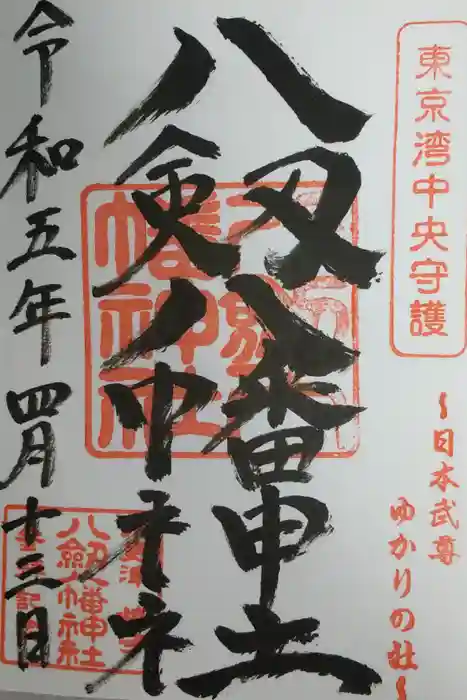 東京湾中央守護
～日本武尊
ゆかりの社～
八剱八幡神社
令和五年四月十三日
八剱八幡神社